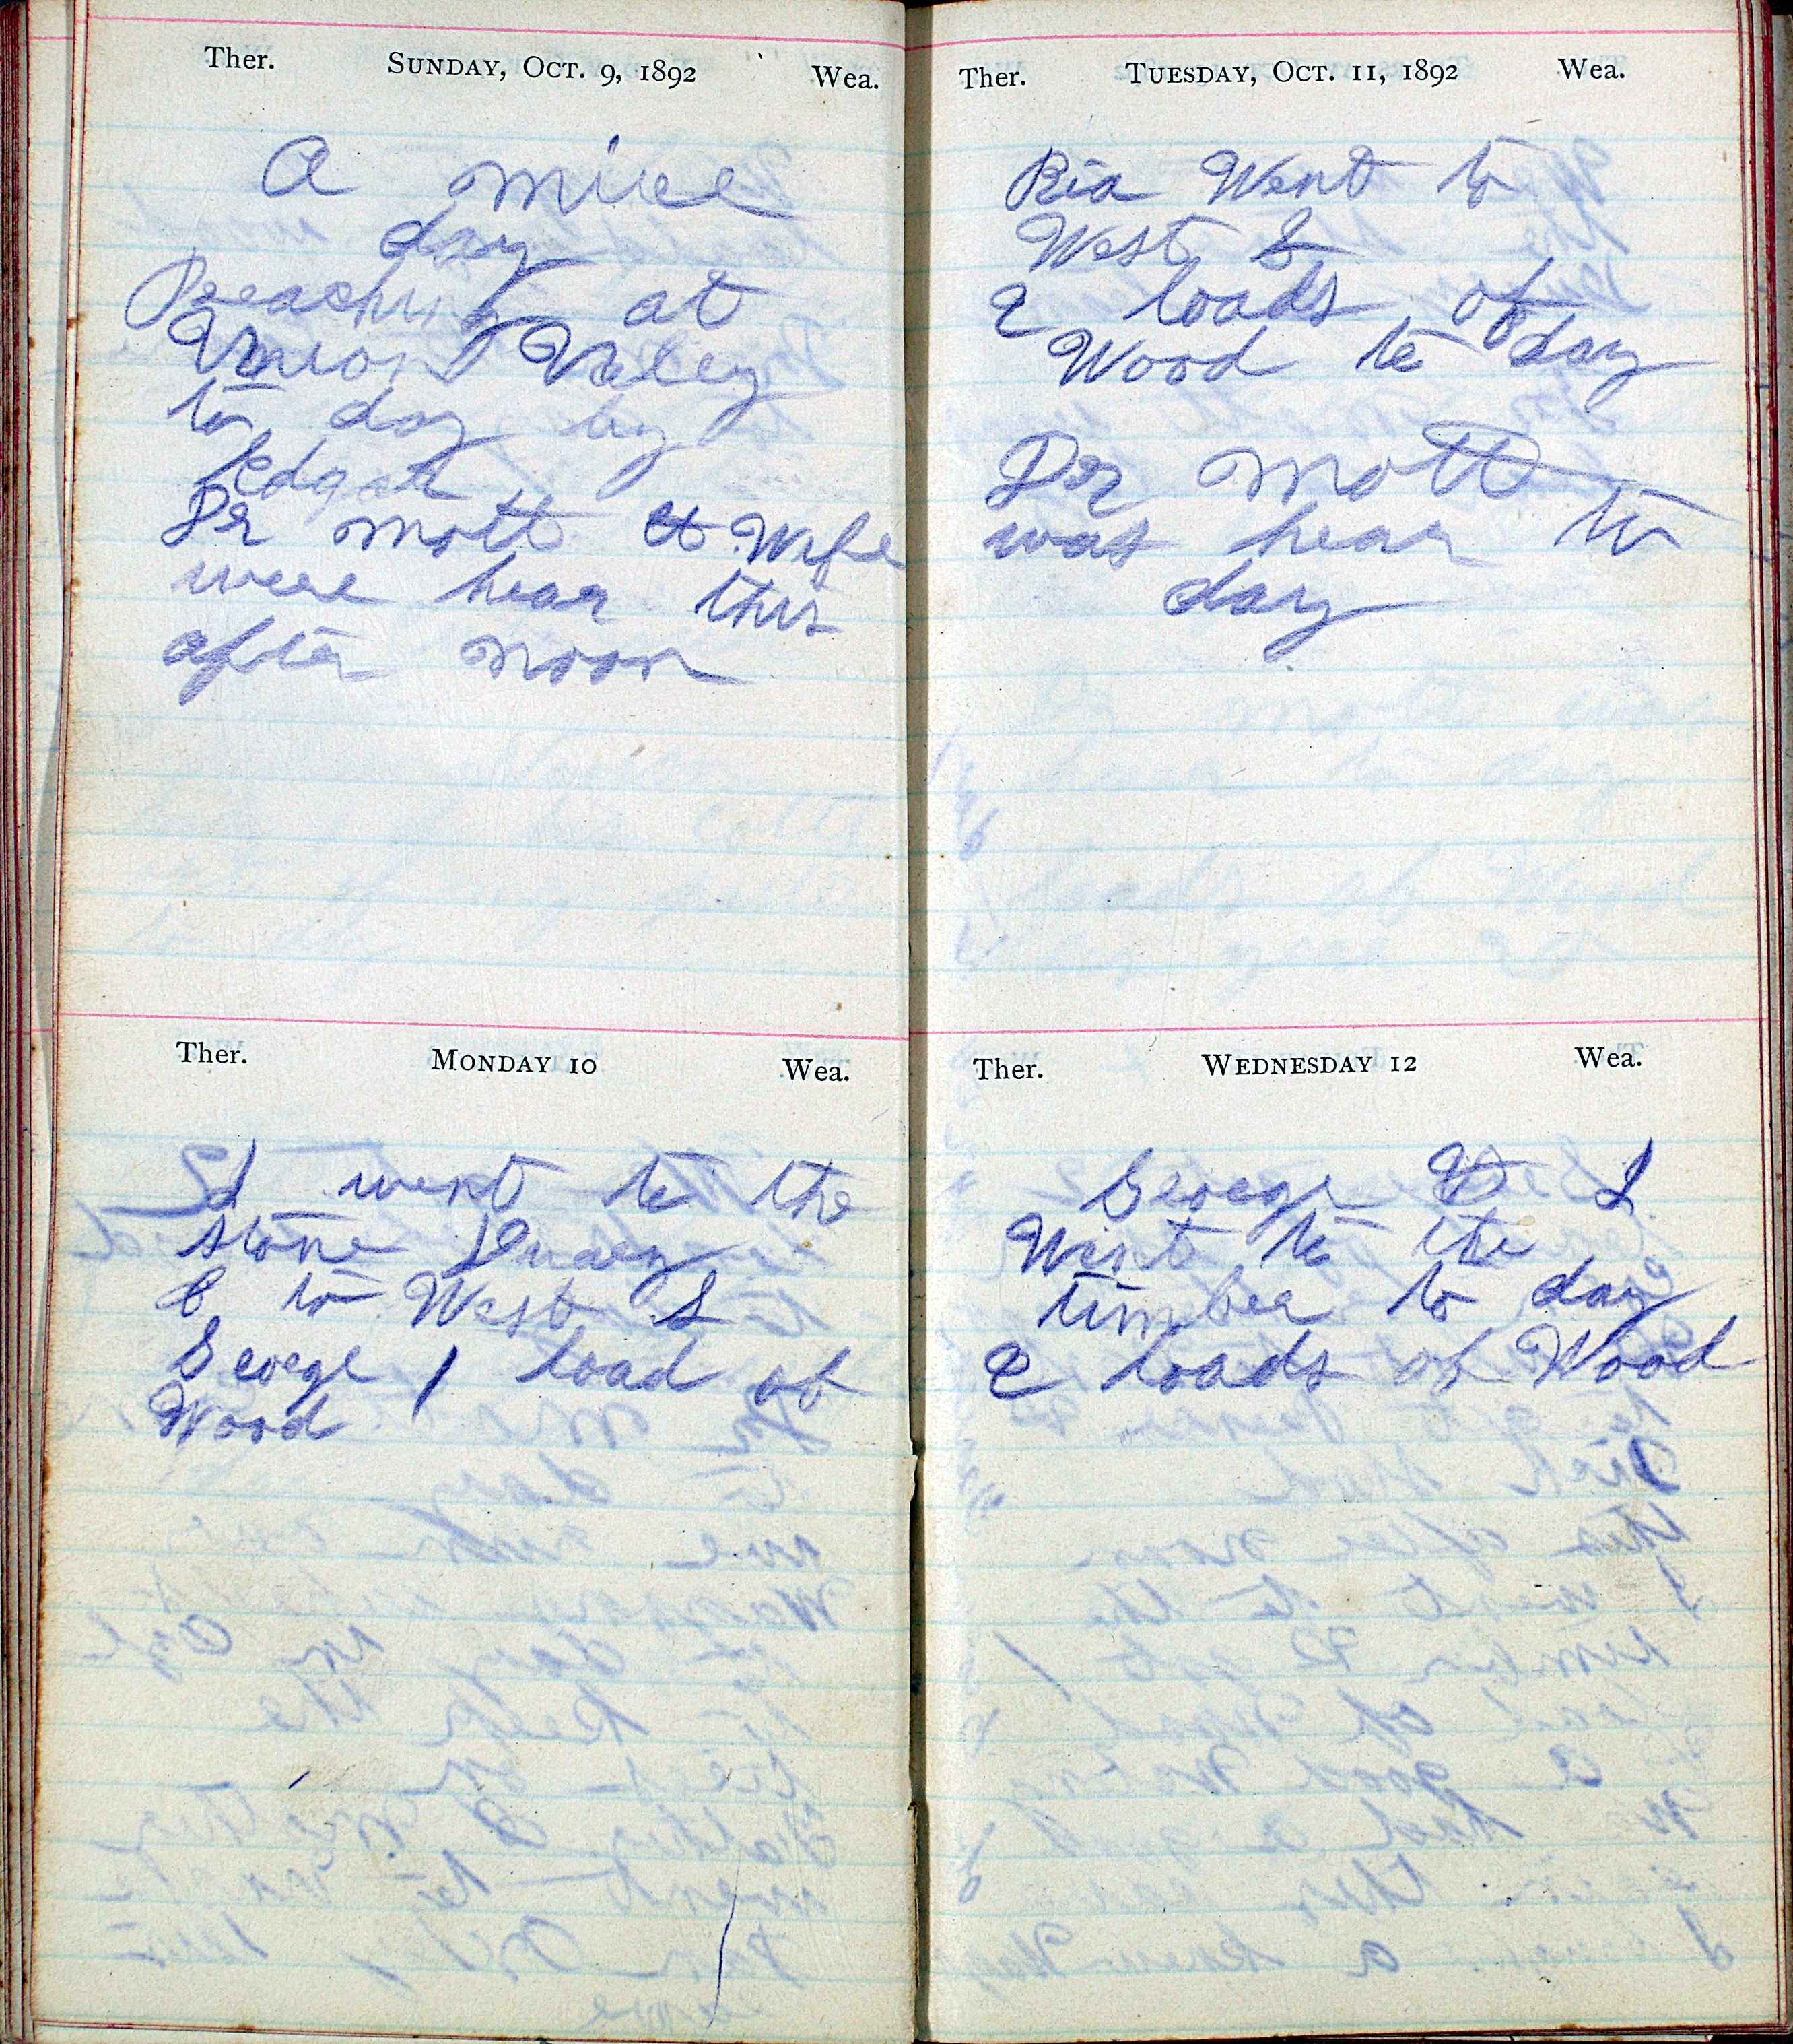 Ther. SUNDAY, OCT. 9, 1892 Wea.
A mice
day
Preaching at
Union Valey
to day by
Edgar
Dr Mott & Wife
were hear this
after noon
Ther. MONDAY 10 Wea.
I went to the
stone Quary
& to West L
George 1 load of
Wood
Ther. TUESDAY, OCT. 11, 1892 Wea.
Ria Went to
West L
2 loads of
Wood to day
Dr Mott
was hear to
day
Ther. WEDNESDAY 12 Wea.
George & I
Went to the
timber to day
2 loads of Wood